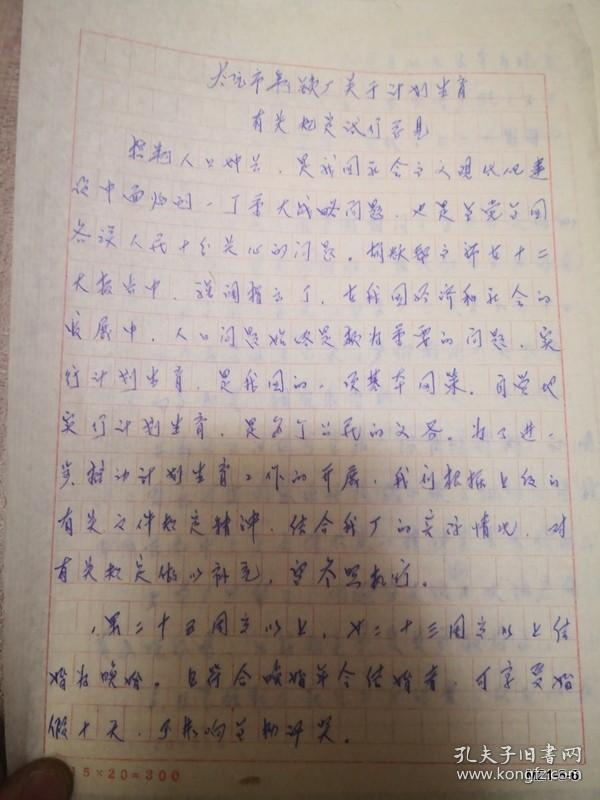 太原市氧气厂关于计划生育
有关规定试行意见
控制人口增长，是我国社会主义现代化建
设中面临的一个重大战略问题，也是全党全国
各族人民十分关心的问题。胡耀邦主席在十二
大报告中，强调指出了，在我国经济和社会的
发展中，人口问题始终是极为重要的问题，实
行计划生育，是我国的一项基本国策。自觉地
实行计划生育，是每个公民的义务。为了进一
步推动计划生育工作的开展，我们根据上级的
有关文件规定精神，结合我厂的实际情况，对
有关规定做以补充，望参照执行。
1男二十五周岁以上，女二十三周岁以上结
婚为晚婚。凡符合晚婚年令结婚者，可享受婚
假十天，不影响全勤评奖。
15×20=300
孔夫子旧书网
www.kongfz.com